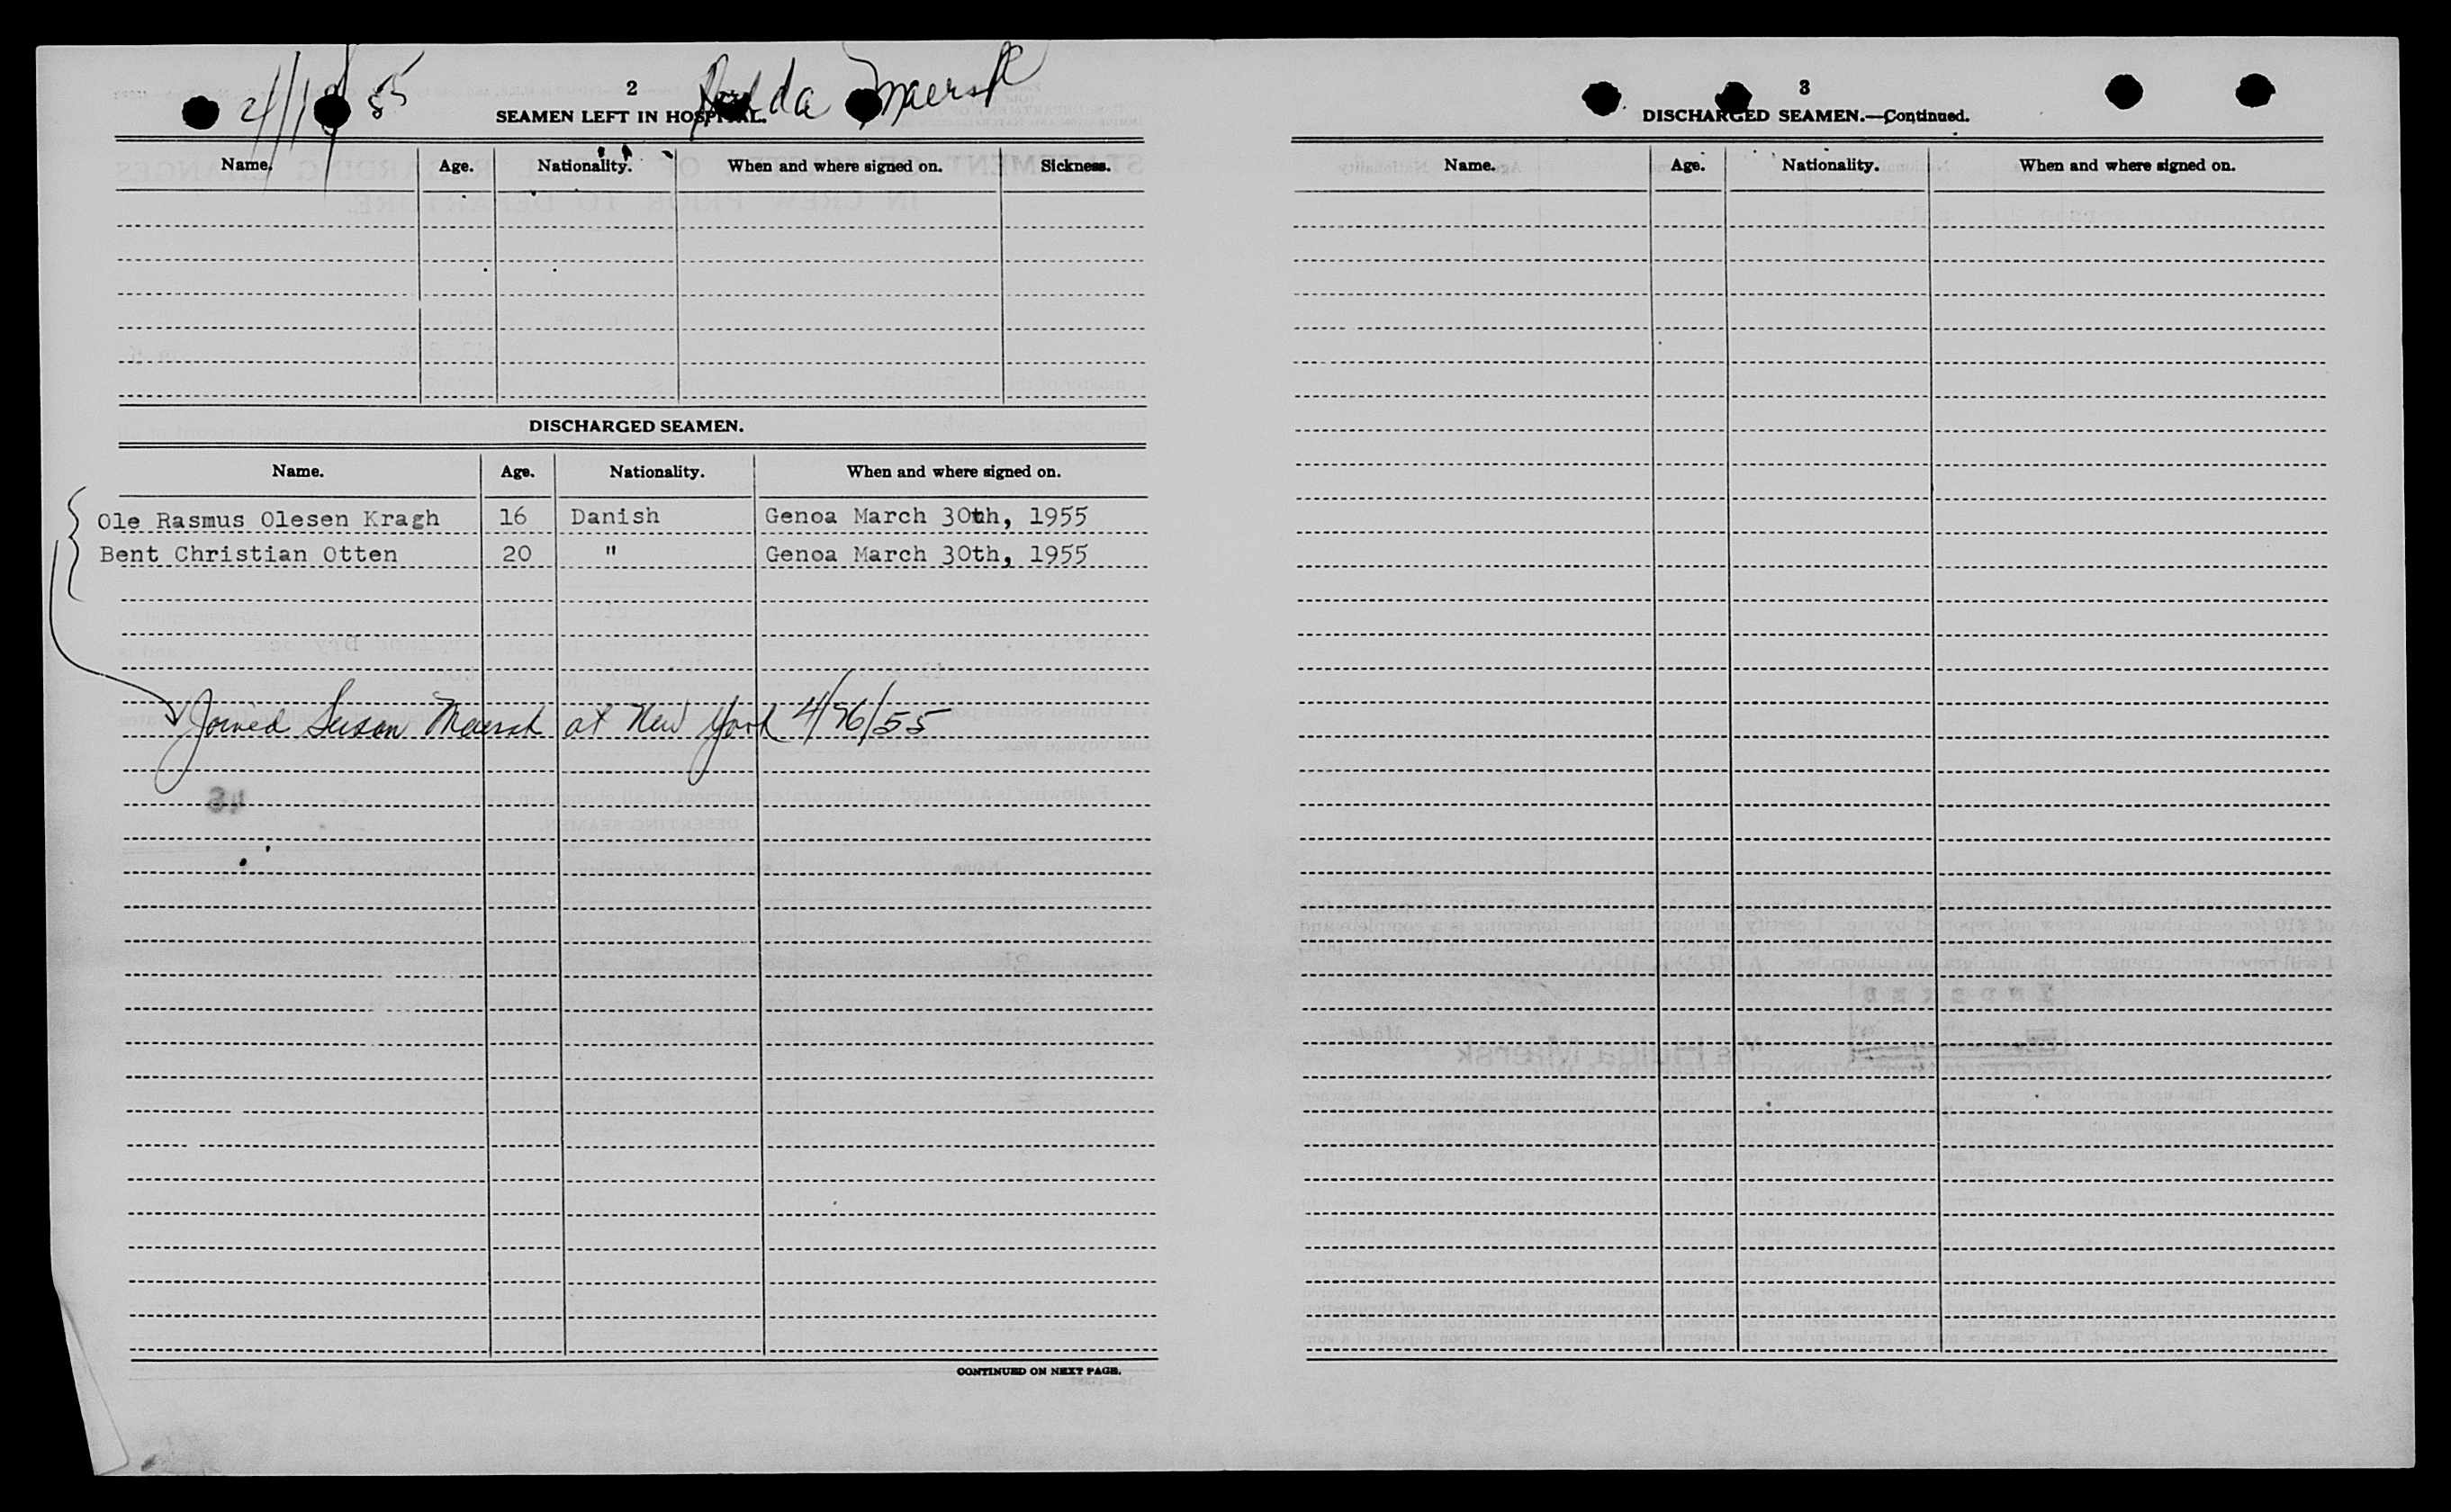 2
Hulda Maersk
SEAMEN LEFT IN HOSPITAL.
Name. Age. Nationality. When and where signed on. Sickness.
DISCHARGED SEAMEN.
Name. Age. Nationality. When and where signed on.
Ole Rasmus Olesen Kragh 16 Danish Genoa March 30th, 1955
Bent Christian Otten 20 " Genoa March 30th, 1955
Joined Susan Maersk at New York 4/26/55
34
CONTINUED ON NEXT PAGE.
3
DISCHARGED SEAMEN.—Continued.
Name. Age. Nationality. When and where signed on.